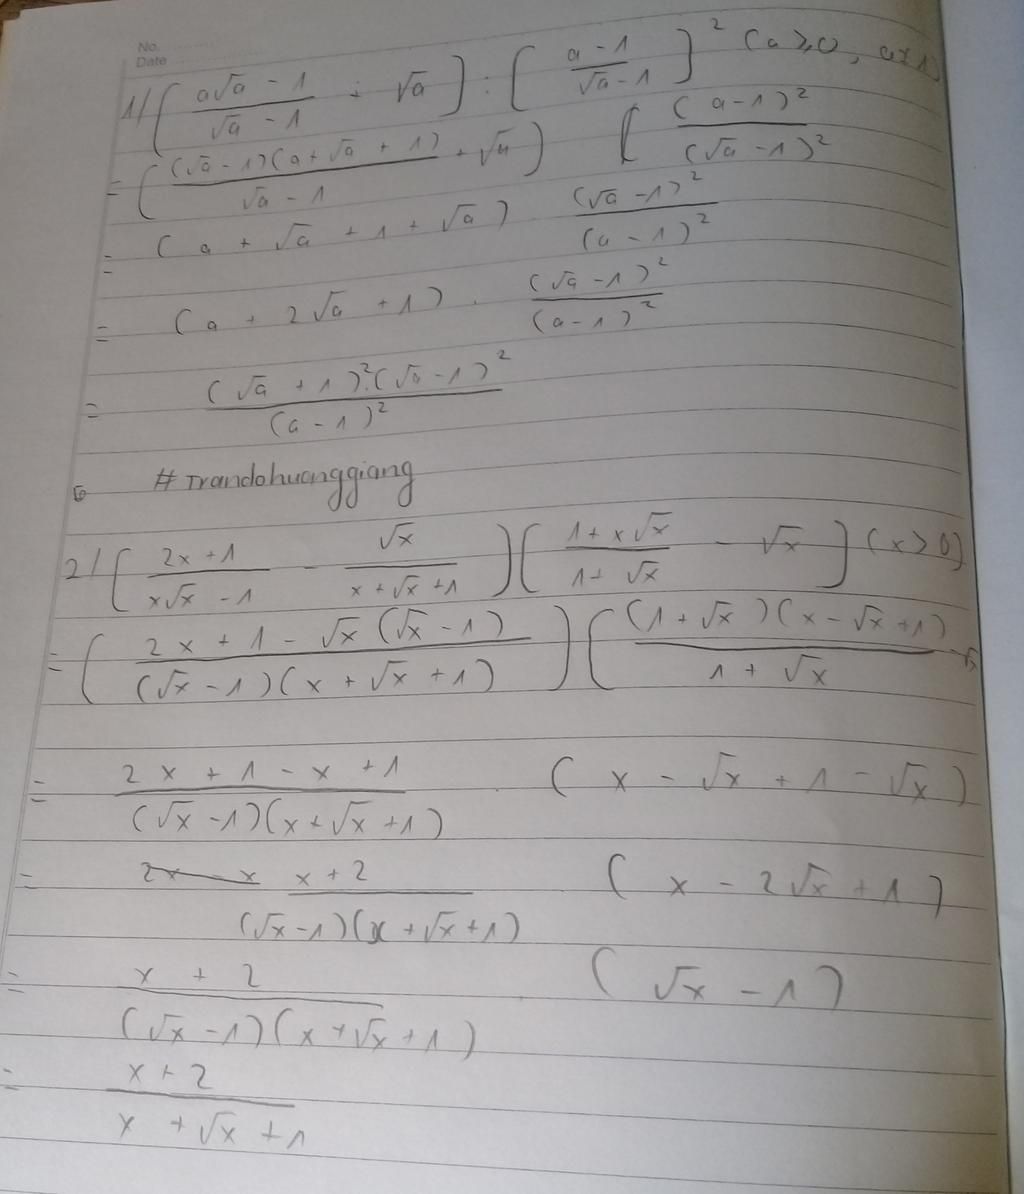 No.
Date
1/ ( (a√a - 1)/(√a - 1) + √a ) : ( (a - 1)/(√a - 1) )² (a ≥ 0, a ≠ 1)
= ( (√a - 1)(a + √a + 1)/(√a - 1) + √a ) ( (a - 1)²/(√a - 1)²
= (a + √a + 1 + √a) . (√a - 1)²/(a - 1)²
= (a + 2√a + 1) . (√a - 1)²/(a - 1)²
= (√a + 1)².(√a - 1)²/(a - 1)²
# Trandohuanggiang
2/ ( (2x + 1)/(x√x - 1) - √x/(x + √x + 1) ) ( (1 + x√x)/(1 + √x) - √x ) (x > 0)
= ( (2x + 1 - √x(√x - 1))/((√x - 1)(x + √x + 1)) ) ( (1 + √x)(x - √x + 1)/(1 + √x) - √x
= (2x + 1 - x + 1)/((√x - 1)(x + √x + 1)) . (x - √x + 1 - √x)
= (x + 2)/((√x - 1)(x + √x + 1)) (x - 2√x + 1)
= (x + 2)/((√x - 1)(x + √x + 1)) . (√x - 1)
= (x + 2)/(x + √x + 1)